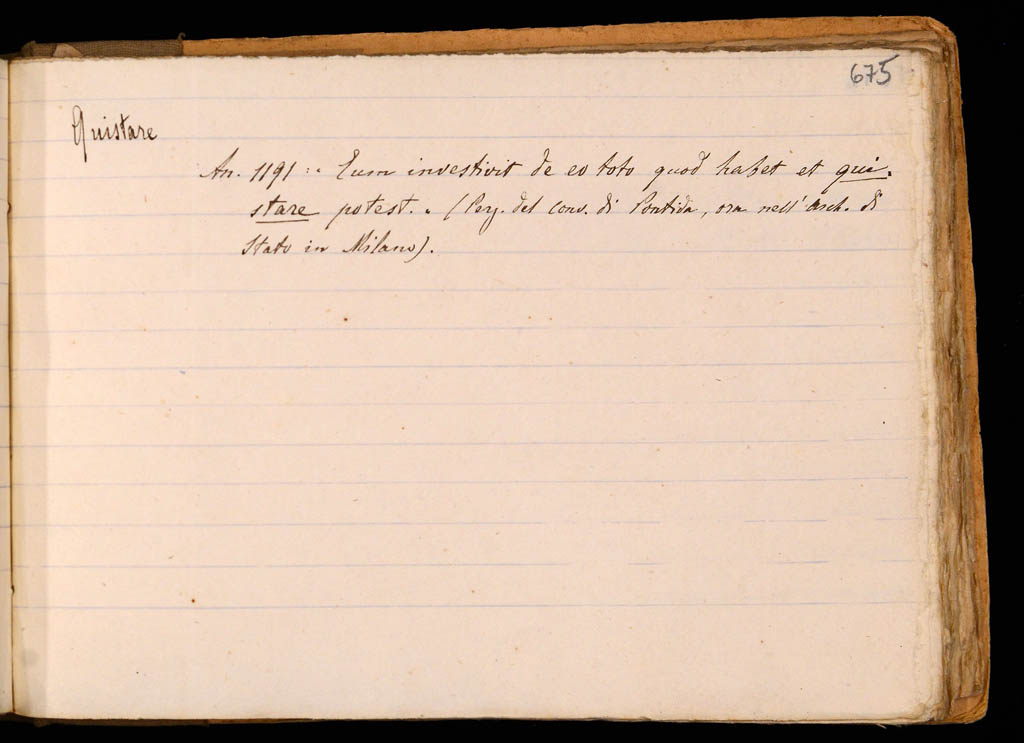 675
Quistare
An. 1191: "Eum investivit de eo toto quod habet et qui-
stare potest." (Perg. del conv. di Pontida, ora nell'Arch. di
Stato in Milano).